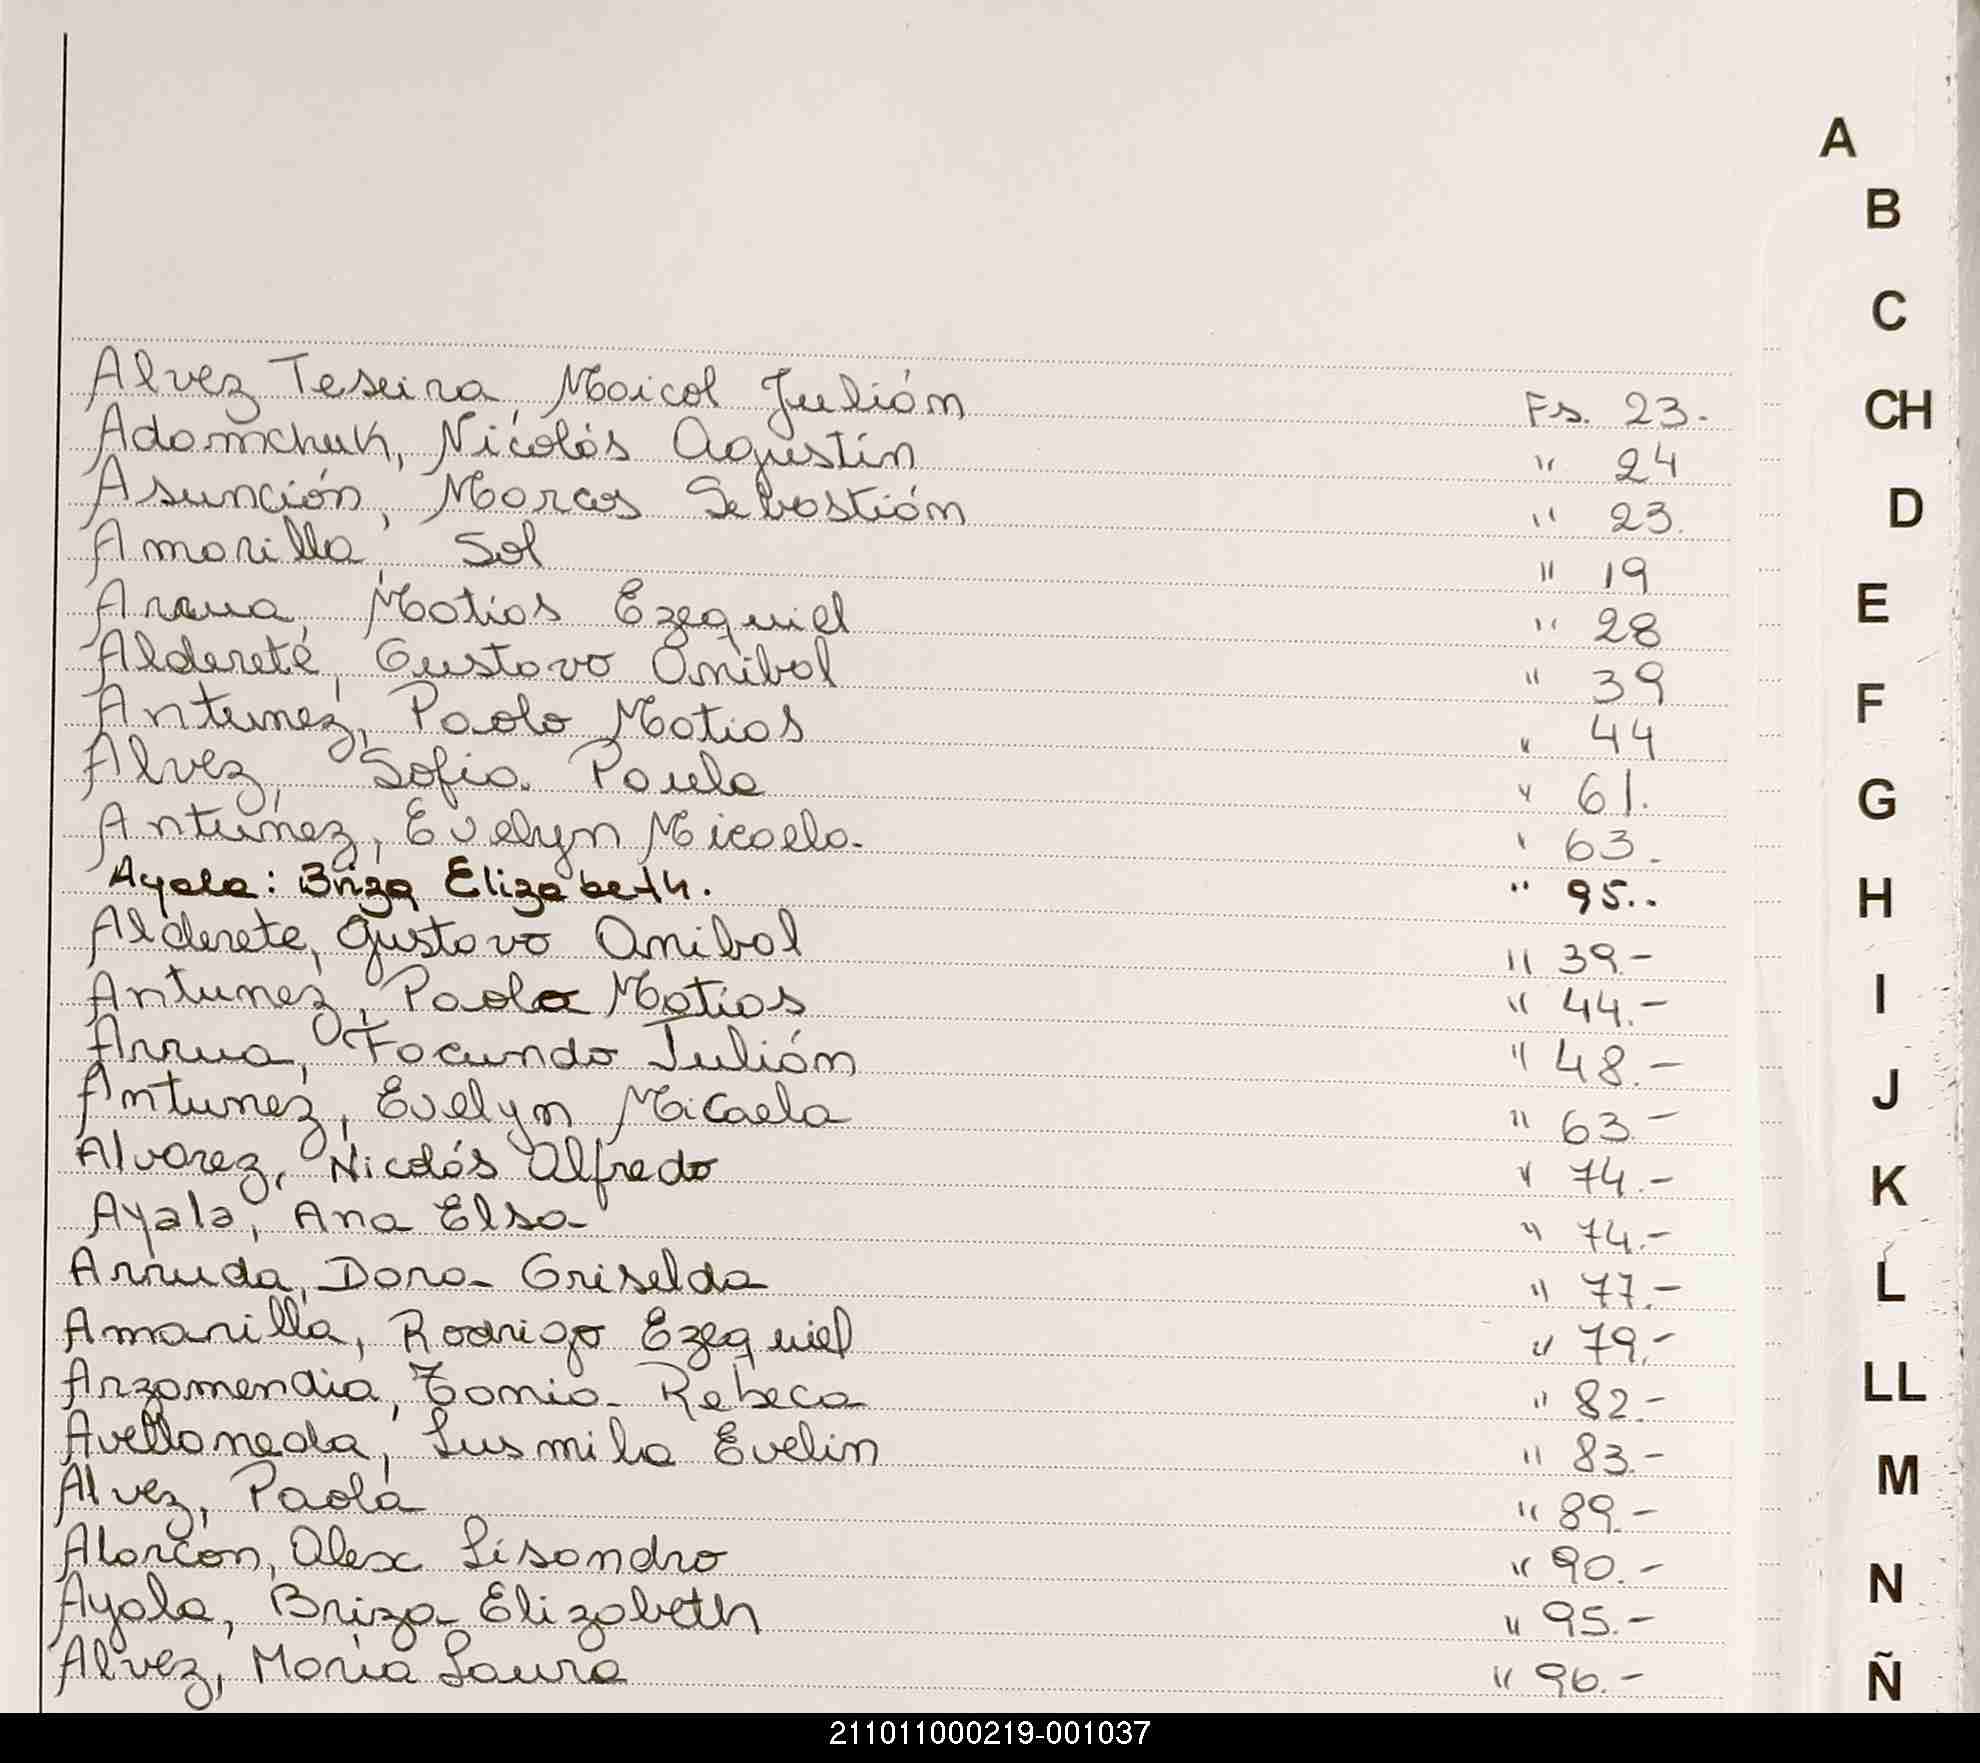 A
B
C
CH
D
E
F
G
H
I
J
K
L
LL
M
N
Ñ
Alvez Teseira, Maicol Julián Fs. 23.
Adamchuk, Nicolás Agustín " 24
Asunción, Marcos Sebastián " 23.
Amarilla, Sol " 19
Arrua, Matias Ezequiel " 28
Aldereté, Gustavo Anibal " 39
Antunez, Paolo Matias " 44
Alvez, Sofia Paula " 61.
Antunez, Evelyn Micaela " 63.
Ayala: Briza Elizabeth. " 95..
Alderete, Gustavo Anibal " 39.-
Antunez, Paola Matias " 44.-
Arrua, Facundo Julián " 48.-
Antunez, Evelyn Micaela " 63.-
Alvarez, Nicolás Alfredo " 74.-
Ayala, Ana Elsa " 74.-
Arruda, Dora Griselda " 77.-
Amarilla, Rodrigo Ezequiel " 79.-
Arzamendia, Tania Rebeca " 82.-
Avellaneda, Lusmila Evelin " 83.-
Alvez, Paola " 89.-
Alarcón, Alex Lisandro " 90.-
Ayala, Briza Elizabeth " 95.-
Alvez, Maria Laura " 96.-
211011000219-001037